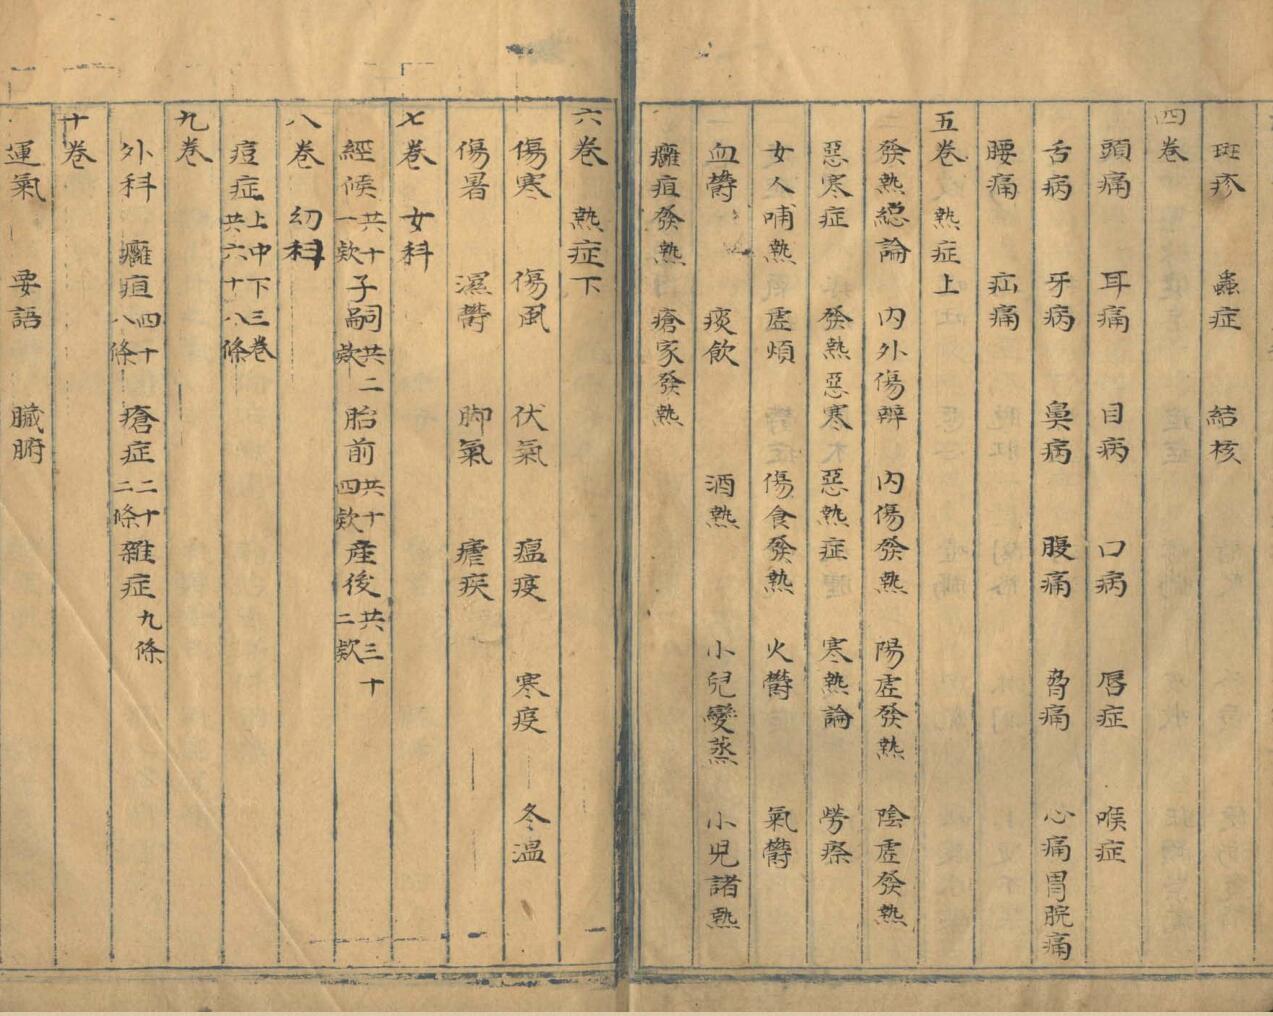 斑疹 蟲症 結核
四卷
頭痛 耳痛 目病 口病 唇症 喉症
舌病 牙病 鼻病 腹痛 脅痛 心痛胃脘痛
腰痛 疝痛
五卷 熱症上
發熱總論 內外傷辨 內傷發熱 陽虛發熱 陰虛發熱
惡寒症 發熱惡寒 惡熱症 寒熱論 勞瘵
女人晡熱 虛煩 傷食發熱 火鬱 氣鬱
血鬱 痰飲 酒熱 小兒變蒸 小児諸熱
癰疽發熱 瘡家發熱
六卷 熱症下
傷寒 傷風 伏氣 瘟疫 寒疫 冬溫
傷暑 濕鬱 脚氣 瘧疾
七卷 女科
經候共十一欵 子嗣共二欵 胎前共十四欵 產後共三十二欵
八卷 幼科
痘症上中下三卷共六十八條
九卷
外科 癰疽四十八條 瘡症二十二條 雜症九條
十卷
運氣 要語 臟腑